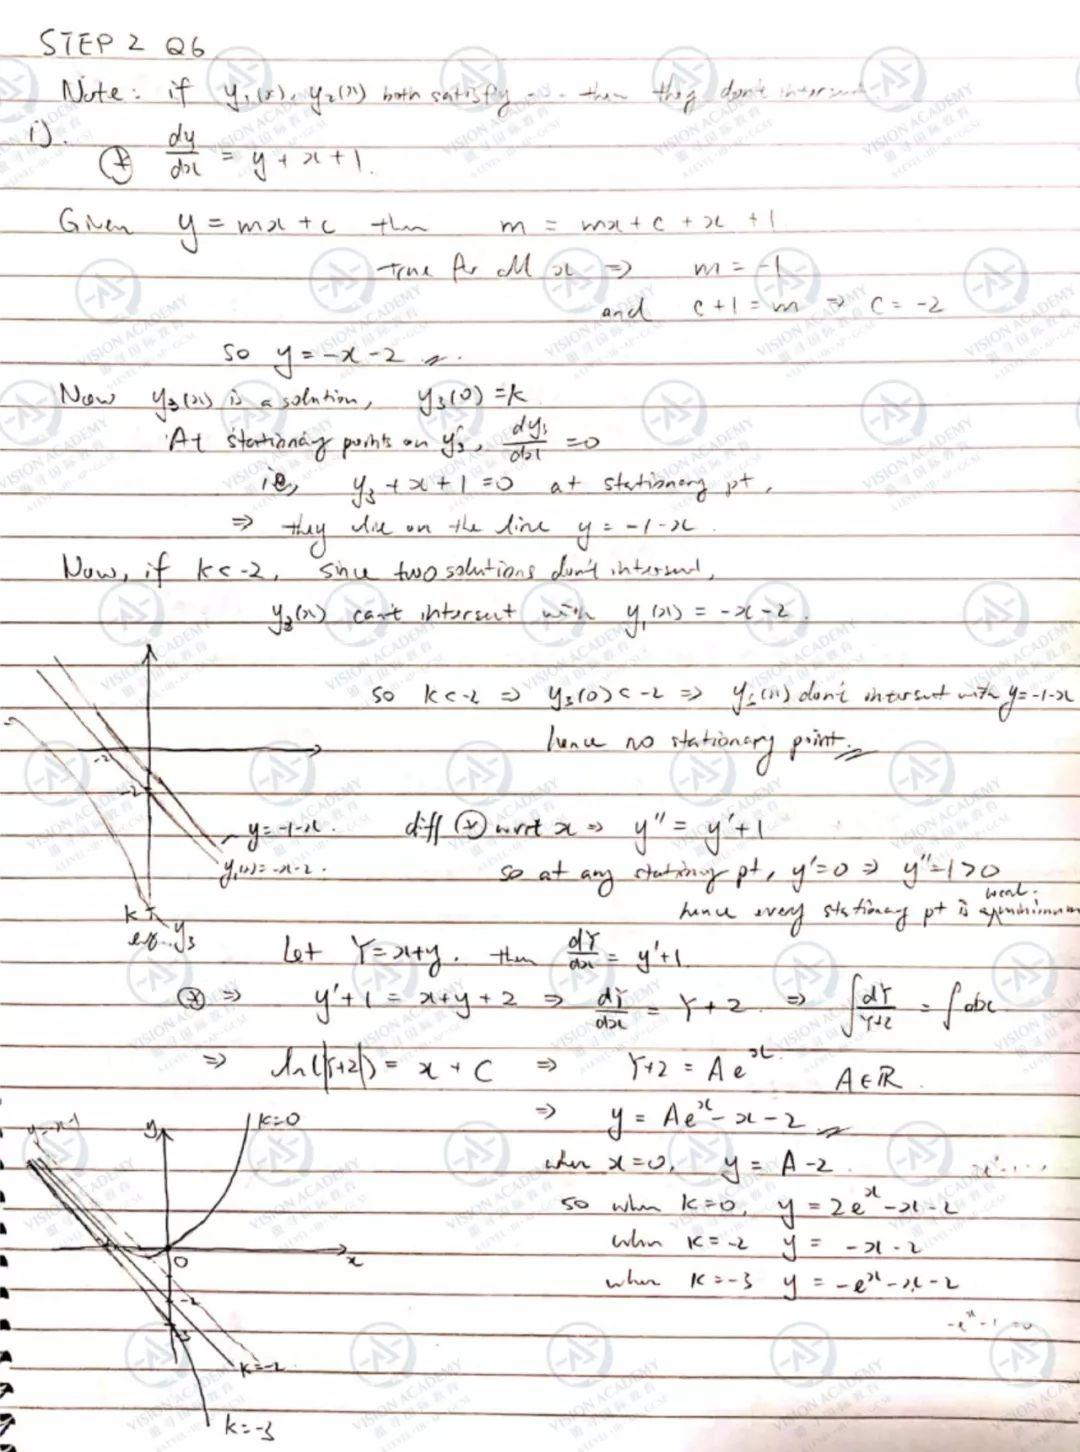 STEP 2 Q6
Note: if y₁(x), y₂(x) both satisfy ... then they don't intersect
i).
⊛ dy/dx = y + x + 1.
Given y = mx + c then m = mx + c + x + 1
true for all x ⇒ m = -1
and c + 1 = m ⇒ c = -2
so y = -x - 2 //.
Now y₃(x) is a solution, y₃(0) = k
At stationary points on y₃, dy₃/dx = 0
ie, y₃ + x + 1 = 0 at stationary pt,
⇒ they lie on the line y = -1-x.
Now, if k < -2, since two solutions don't intersect,
y₃(x) can't intersect with y₁(x) = -x-2.
so k < -2 ⇒ y₃(0) < -2 ⇒ y₃(x) don't intersect with y = -1-x
hence no stationary point. //
-2
-2
y = -1-x.
y₁(x) = -x-2.
k
eg. y₃
diff ⊛ wrt x ⇒ y'' = y' + 1
so at any stationary pt, y' = 0 ⇒ y'' = 1 > 0
hence every stationary pt is a local minimum
Let Y = x+y. then dY/dx = y'+1
⊛ ⇒ y'+1 = x+y+2 ⇒ dY/dx = Y+2 ⇒ ∫ dY/Y+2 = ∫ dx
⇒ ln(|Y+2|) = x + C ⇒ Y+2 = Aeˣ A∈ℝ.
⇒ y = Aeˣ - x - 2 //
when x=0, y = A-2.
so when k=0, y = 2eˣ - x - 2
when k = -2 y = -x-2
when k = -3 y = -eˣ - x - 2
y = -x-1
y
k=0
0
x
-2
-3
k=-2
k=-3
VISION ACADEMY
A-LEVEL·IB·AP·GCSE